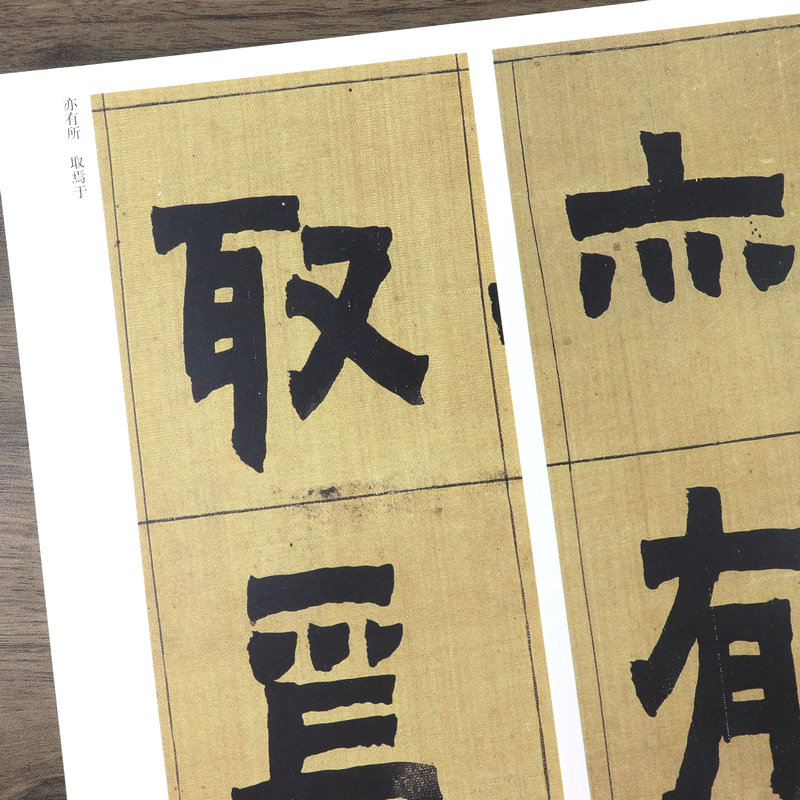 亦有
取焉
亦有所　取焉于